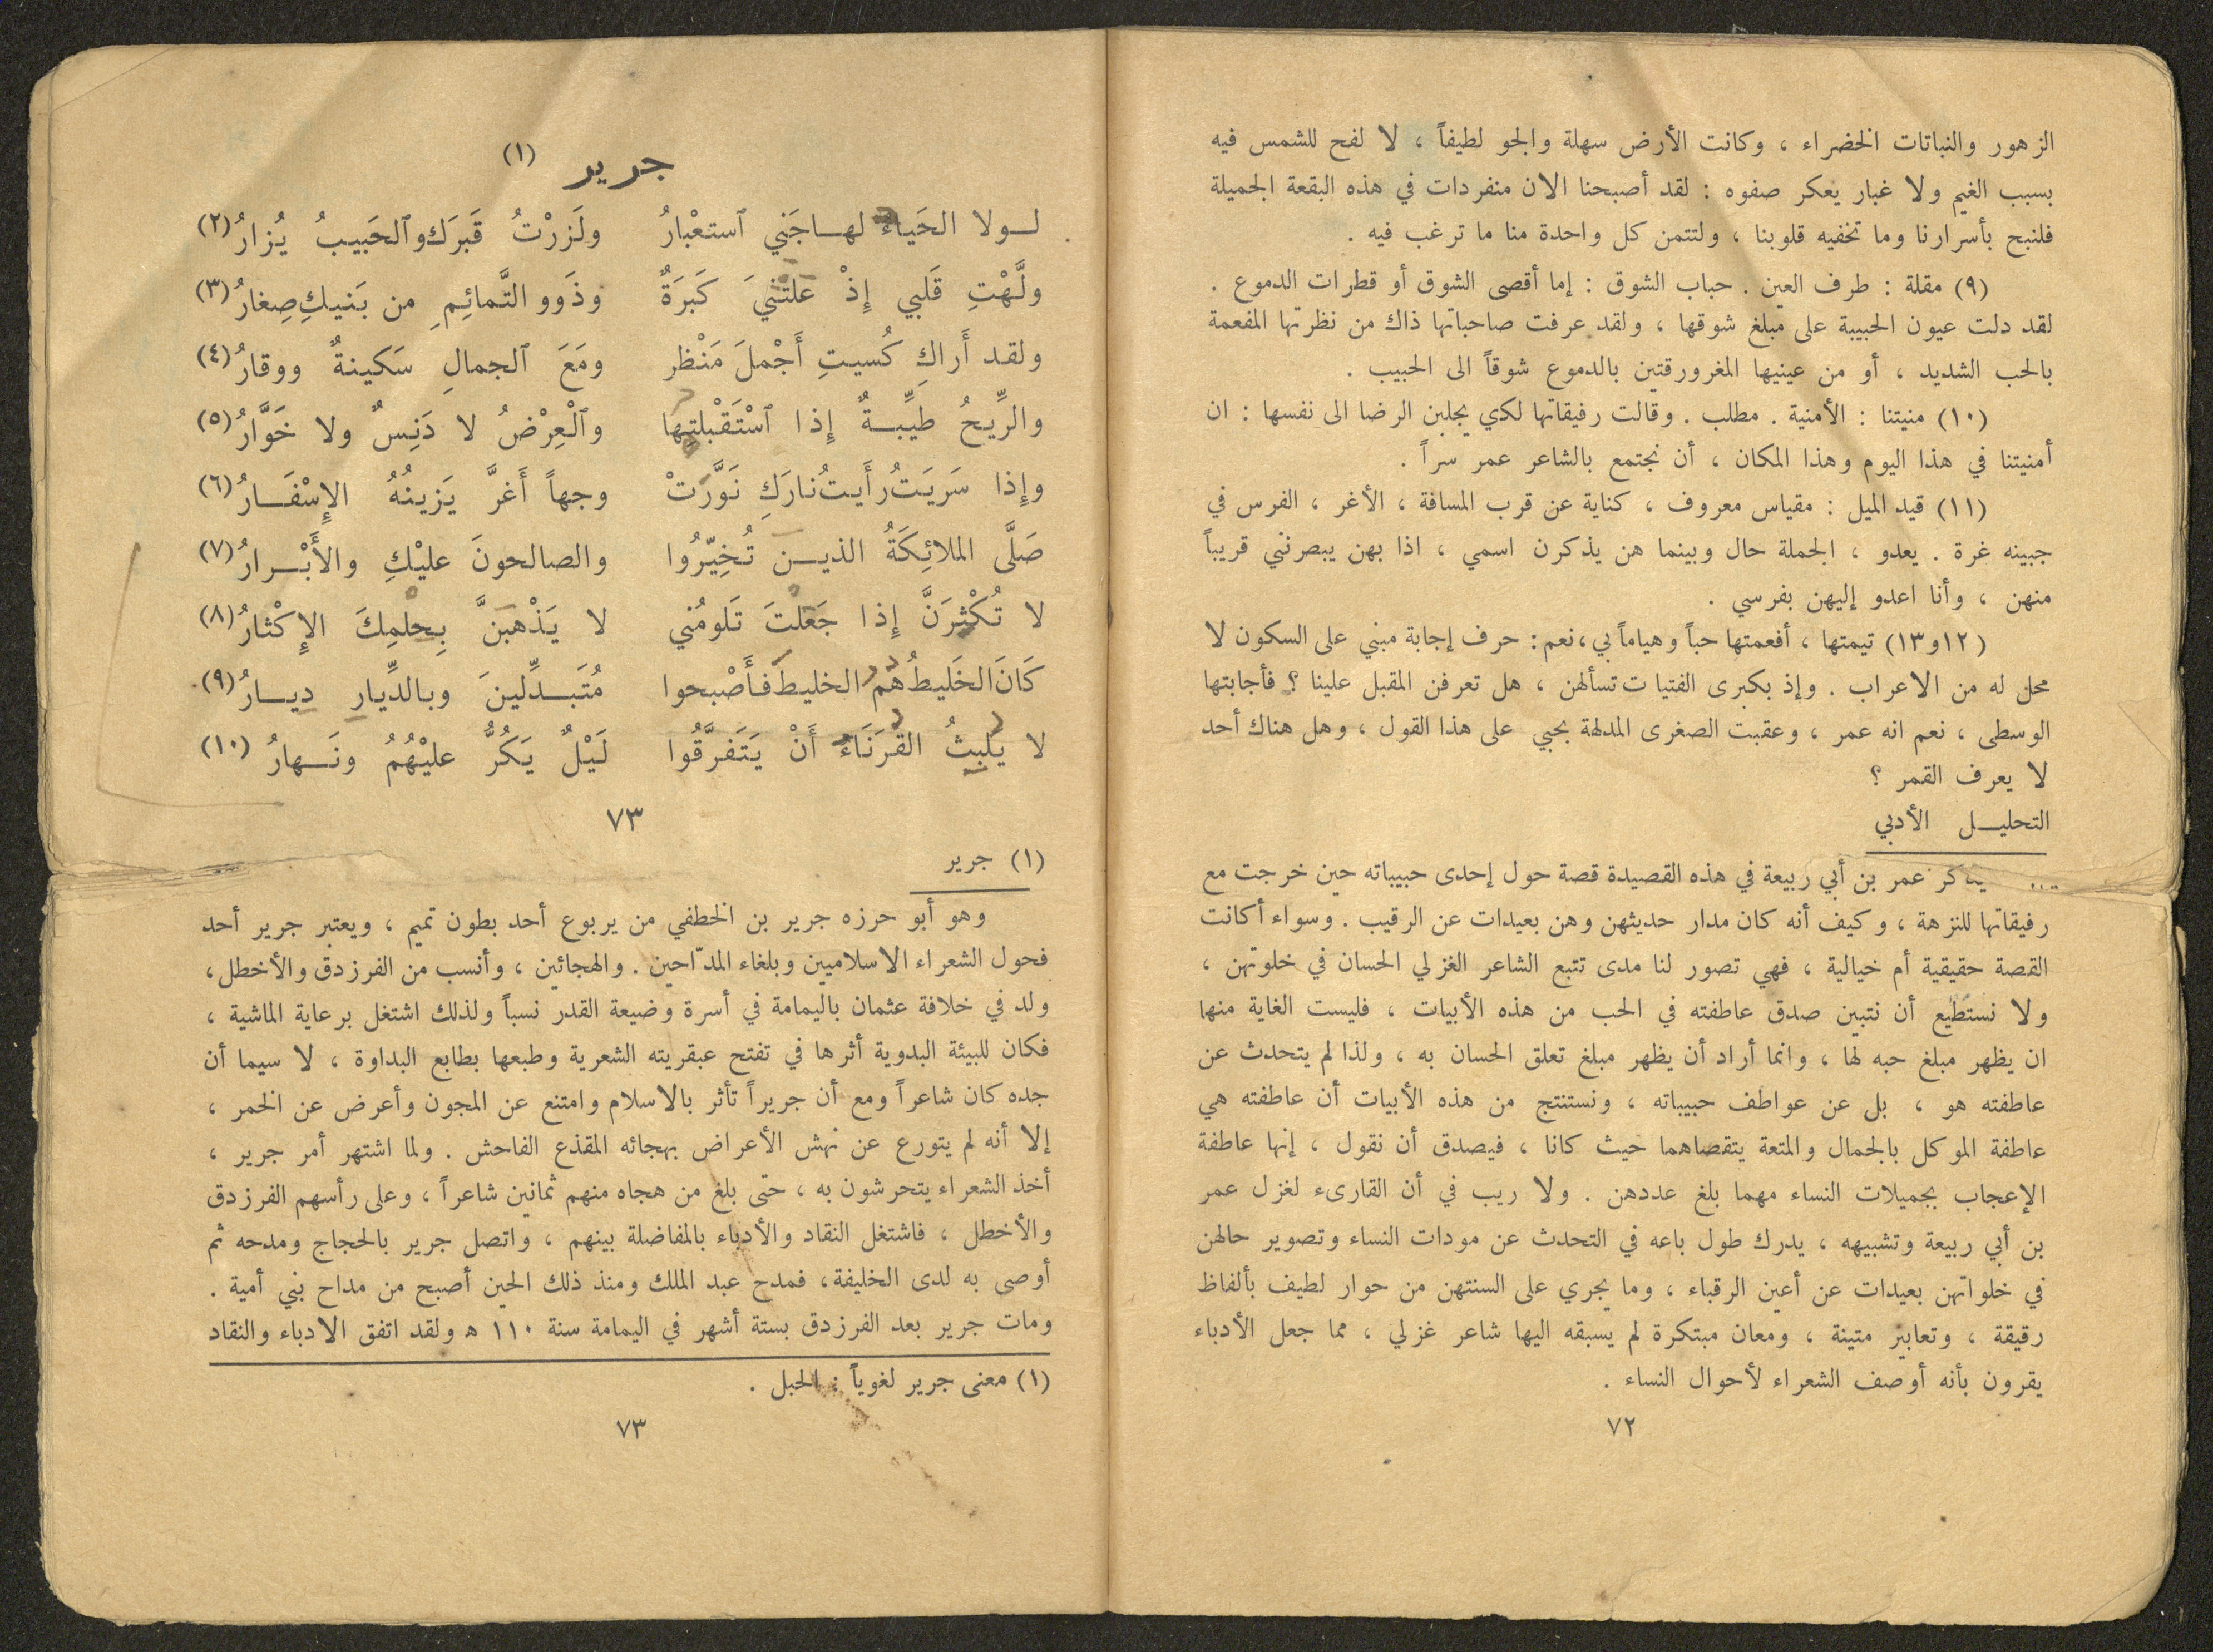 الزهور والنباتات الخضراء ، وكانت الأرض سهلة والجو لطيفاً ، لا لفح للشمس فيه
بسبب الغيم ولا غبار يعكر صفوه : لقد أصبحنا الان منفردات في هذه البقعة الجميلة
فلنبح بأسرارنا وما تخفيه قلوبنا ، ولتتمن كل واحدة منا ما ترغب فيه .
(٩) مقلة : طرف العين . حباب الشوق : إما أقصى الشوق أو قطرات الدموع .
لقد دلت عيون الحبيبة على مبلغ شوقها ، ولقد عرفت صاحباتها ذاك من نظرتها المفعمة
بالحب الشديد ، أو من عينيها المغرورقتين بالدموع شوقاً الى الحبيب .
(١٠) منيتنا : الأمنية . مطلب . وقالت رفيقاتها لكي يجلبن الرضا الى نفسها : ان
أمنيتنا في هذا اليوم وهذا المكان ، أن نجتمع بالشاعر عمر سراً .
(١١) قيد الميل : مقياس معروف ، كناية عن قرب المسافة ، الأغر ، الفرس في
جبينه غرة . يعدو ، الجملة حال وبينما هن يذكرن اسمي ، اذا بهن يبصرنني قريباً
منهن ، وأنا اعدو إليهن بفرسي .
(١٢و١٣) تيمتها ، أفعمتها حباً وهياماً بي ، نعم : حرف إجابة مبني على السكون لا
محل له من الاعراب . وإذ بكبرى الفتيات تسألهن ، هل تعرفن المقبل علينا ؟ فأجابتها
الوسطى ، نعم انه عمر ، وعقبت الصغرى المدلهة بحبي على هذا القول ، وهل هناك أحد
لا يعرف القمر ؟
التحليـل الأدبي
يذكر عمر بن أبي ربيعة في هذه القصيدة قصة حول إحدى حبيباته حين خرجت مع
رفيقاتها للنزهة ، وكيف أنه كان مدار حديثهن وهن بعيدات عن الرقيب . وسواء أكانت
القصة حقيقية أم خيالية ، فهي تصور لنا مدى تتبع الشاعر الغزلي الحسان في خلوتهن ،
ولا نستطيع أن نتبين صدق عاطفته في الحب من هذه الأبيات ، فليست الغاية منها
ان يظهر مبلغ حبه لها ، وانما أراد أن يظهر مبلغ تعلق الحسان به ، ولذا لم يتحدث عن
عاطفته هو ، بل عن عواطف حبيباته ، ونستنتج من هذه الأبيات أن عاطفته هي
عاطفة الموكل بالجمال والمتعة يتقصاهما حيث كانا ، فيصدق أن نقول ، إنها عاطفة
الإعجاب بجميلات النساء مهما بلغ عددهن . ولا ريب في أن القارىء لغزل عمر
بن أبي ربيعة وتشبيهه ، يدرك طول باعه في التحدث عن مودات النساء وتصوير حالهن
في خلواتهن بعيدات عن أعين الرقباء ، وما يجري على السنتهن من حوار لطيف بألفاظ
رقيقة ، وتعابير متينة ، ومعان مبتكرة لم يسبقه اليها شاعر غزلي ، مما جعل الأدباء
يقرون بأنه أوصف الشعراء لأحوال النساء .
٧٢
جرير (١)
لـولا الحَياءُ لهـاجَني ٱستعْبارُ ولَزرْتُ قَبرَك وٱلحَبيبُ يُزارُ (٢)
ولَّهْتِ قَلبي إِذْ عَلتْنيَ كَبرَةٌ وذَوو التَّمائِمِ من بَنيكِ صِغارُ (٣)
ولقد أَراكِ كُسيتِ أَجْملَ مَنْظر ومَعَ ٱلجمالِ سَكينةٌ ووقارُ (٤)
والرِّيحُ طَيِّبـةٌ إِذا ٱسْتَقْبلتِها وٱلْعِرْضُ لا دَنِسٌ ولا خَوَّارُ (٥)
وإِذا سَرَيَتُ رأَيتُ نارَكِ نَوَّرتْ وجهاً أَغرَّ يَزينُهُ الإِسْفَـارُ (٦)
صَلَّى الملائِكَةُ الذيـن تُخِيّرُوا والصالحونَ عليْكِ والأَبْـرارُ (٧)
لا تُكْثِرَنَّ إِذا جَعَلتَ تَلومُني لا يَذْهَبَنَّ بِحلمِكَ الإِكْثارُ (٨)
كَانَ الخَليطُ هُم الخليطَ فأَصْبحوا مُتَبـدِّلينَ وبالدِّيارِ ديـارُ (٩)
لا يَلبِثُ القُرَنَاءُ أَنْ يَتَفرَّقُوا لَيْلٌ يَكُرُّ عليْهُمُ ونَـهارُ (١٠)
٧٣
(١) جرير
وهو أبو حرزه جرير بن الخطفي من يربوع أحد بطون تميم ، ويعتبر جرير أحد
فحول الشعراء الاسلاميين وبلغاء المدّاحين . والهجائين ، وأنسب من الفرزدق والأخطل ،
ولد في خلافة عثمان باليمامة في أسرة وضيعة القدر نسباً ولذلك اشتغل برعاية الماشية ،
فكان للبيئة البدوية أثرها في تفتح عبقريته الشعرية وطبعها بطابع البداوة ، لا سيما أن
جده كان شاعراً ومع أن جريراً تأثر بالاسلام وامتنع عن المجون وأعرض عن الخمر ،
إلا أنه لم يتورع عن نهش الأعراض بهجائه المقذع الفاحش . ولما اشتهر أمر جرير ،
أخذ الشعراء يتحرشون به ، حتى بلغ من هجاه منهم ثمانين شاعراً ، وعلى رأسهم الفرزدق
والأخطل ، فاشتغل النقاد والأدباء بالمفاضلة بينهم ، واتصل جرير بالحجاج ومدحه ثم
أوصى به لدى الخليفة ، فمدح عبد الملك ومنذ ذلك الحين أصبح من مداح بني أمية .
ومات جرير بعد الفرزدق بستة أشهر في اليمامة سنة ١١٠ ه ولقد اتفق الادباء والنقاد
(١) معنى جرير لغوياً : الحبل .
٧٣